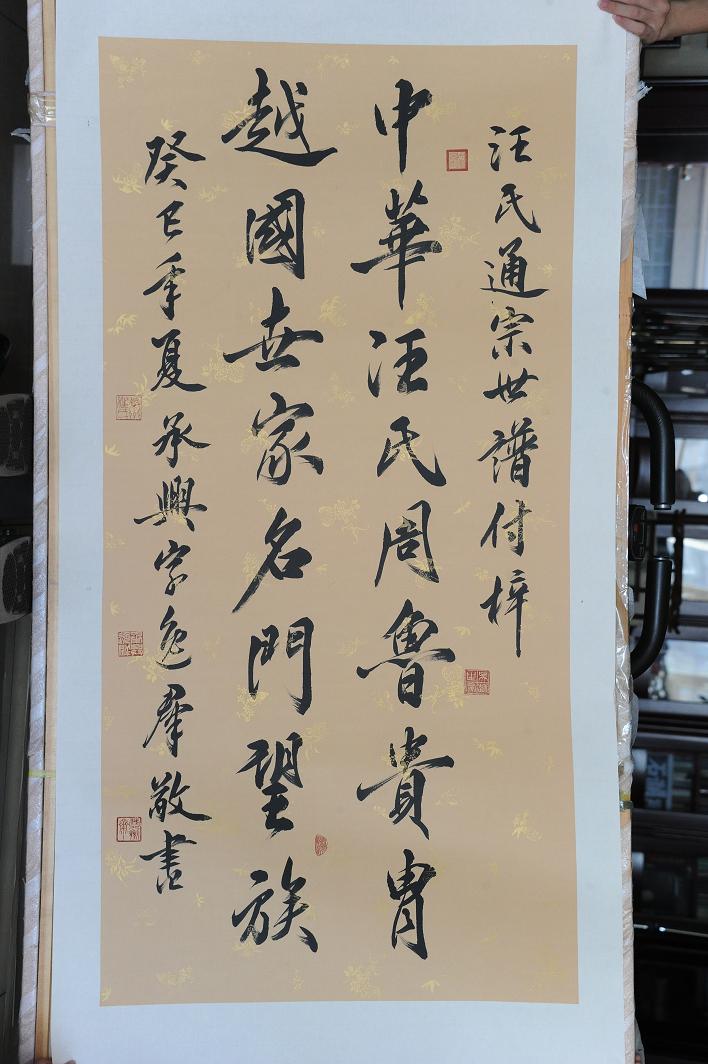 汪氏通宗世譜付梓
中華汪氏周魯貴胄
越國世家名門望族
癸巳年夏承興字逸群敬書